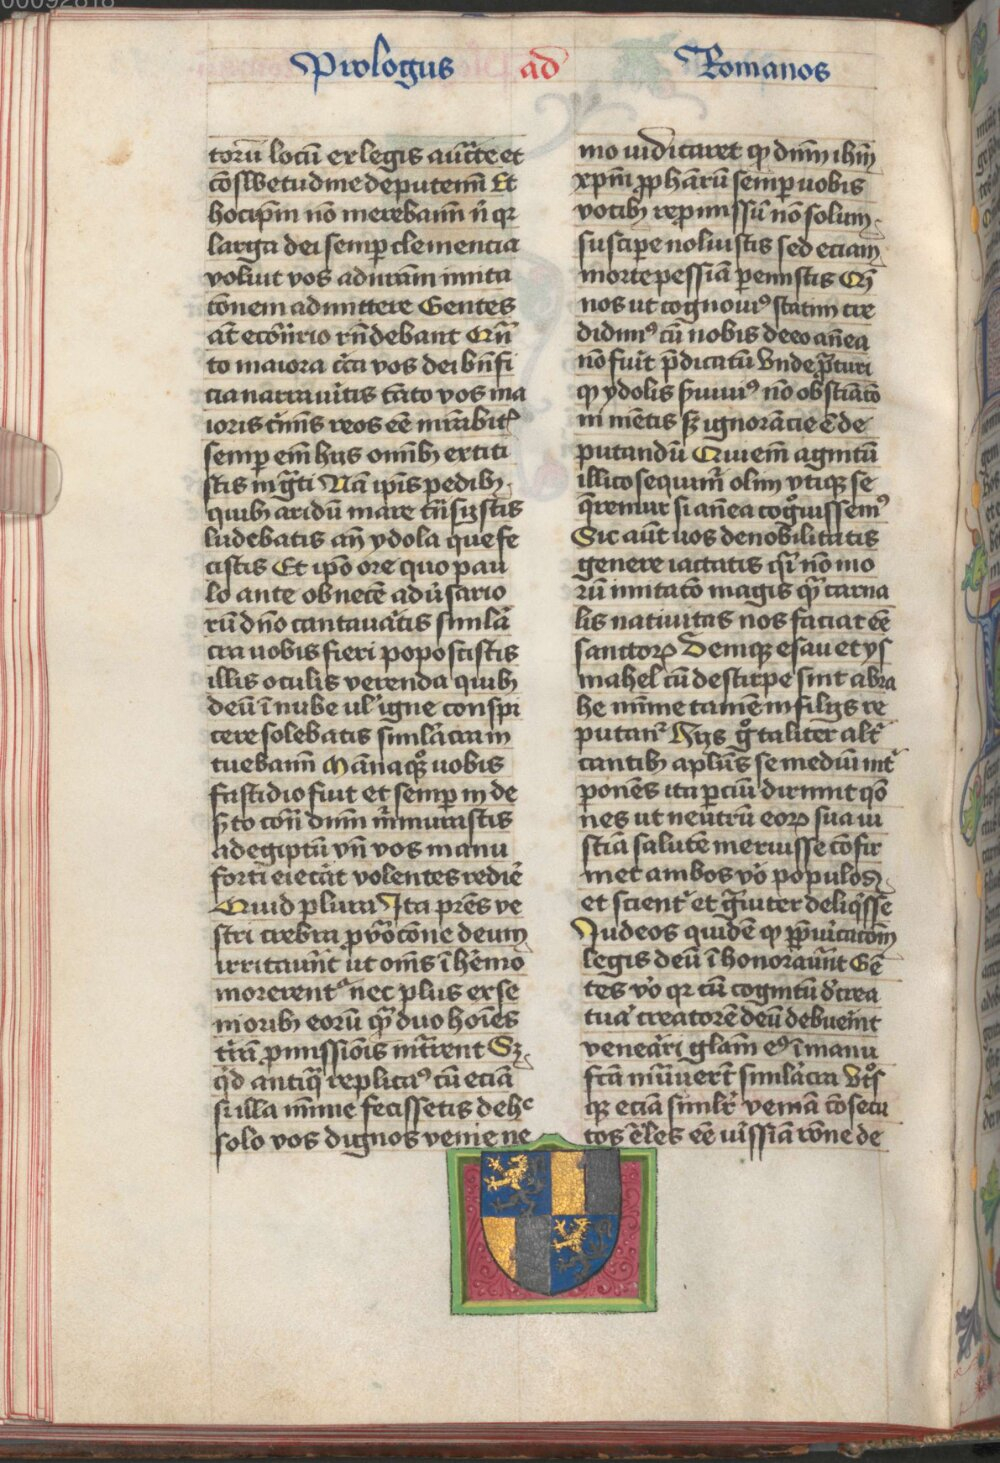 00092818
Prologus ad Romanos
torū locū ex legis auctͤte et
cōswetudine deputem̄ Et
hocip̄m nō merebam̄ n̄ qr
larga dei semꝑ clemencia
voluit vos ad ur̄am imita
cōnem admittere Gentes
at̄ ecōtrͥrio rn̄debant Qn̄
to maiora c̄ca vos dei bn̄fi
cia narraui̾tis tāto vos ma
ioris cͥmīs reos eē mr̄abit̾
semꝑ em̄ hijs om̄ibꝫ extiti
stis ingͣti Nā ip̄is pedibꝫ
quibꝫ aridū mare tn̄sijstis
ludebatis an̄ ydola que fe
cistis Et ip̄o ore quo pau
lo ante ob necē adu̾sario
rū dn̄o cantauͣtis simlā
cra uobis fieri poposcistis
illis oculis verenda quibꝫ
deū ī nube ul̾ igne conspi
cere solebatis simlācra in
tuebam̄ Māna qͦꝫ uobis
fastidio fuit et semꝑ in de
s̾to cōtͣ dn̄m mͬmurastis
ad egiptū vn̄ vos manu
forti eiecāt volentes redie̾
Quid plura Ita pr̄es ve
stri crebra ꝓvōcōne deum
irritauer̄t ut om̄s ī he̾mo
morerent̾ nec plus ex se
nioribꝫ eorū qͣ duo hoīes
tr̄rā ꝓmissiōis intr̄rent Sꝫ
qͥd antiqͣ replicaꝰ cū eciā
si illa mīme fecissetis de hͨ
solo vos dignos venie ne
mo iudicaret qꝫ dn̄m ihm̄
xp̄m ꝓphārū semꝑ uobis
vocibꝫ repromissū nō solum
suscipe noluistis sed eciam
morte pessīa ꝑemistis Qm̄
nos ut cognouiꝰ statim cre
didimꝰ cū nobis de eo an̄ea
nō fuīt p̄dicatū Vnde p̄turi
qꝫ ydolis s̾uiuiꝰ nō obstīacō
ni mētis sꝫ ignorācie ē de
putandū Qui em̄ agnitū
illico sequimͬ olim vtiqꝫ se
q̄remur si an̄ea cogͦuissemꝰ
Sic aūt uos de nobilitatis
genere iactatis qͣsi nō mo
rū imitatō magis qͣ carna
lis natiuitas nos faciat eē
sanctoꝝ Deniqꝫ esau et ys
mahel cū de stirpe sint abra
he mīme tamē in filijs re
putanͬ Hijs gͦ taliter altͬ
cantibꝫ aplūs se mediū intͬ
ponēs ita ꝑciū dirimit qō
nes ut neutrū eoꝝ sua iu
sticia salutē meruisse cōfir
met ambos vō populos
et scient̾ et gͣuiter deliqͥsse
Judeos quidē qꝫ p̄p̄uͥcacōm
legis deū ī honorauer̄t Gē
tes vō qr cū cognitū de crea
tuͣ creatorē deū debueīnt
venerari glam̄ eꝰ ī manu
fc̄a mutauert̄ simlācra Vtͦs
qꝫ eciā similr̄ veniā cōsecu
tos eqͣles eē u̾issīa rōne de